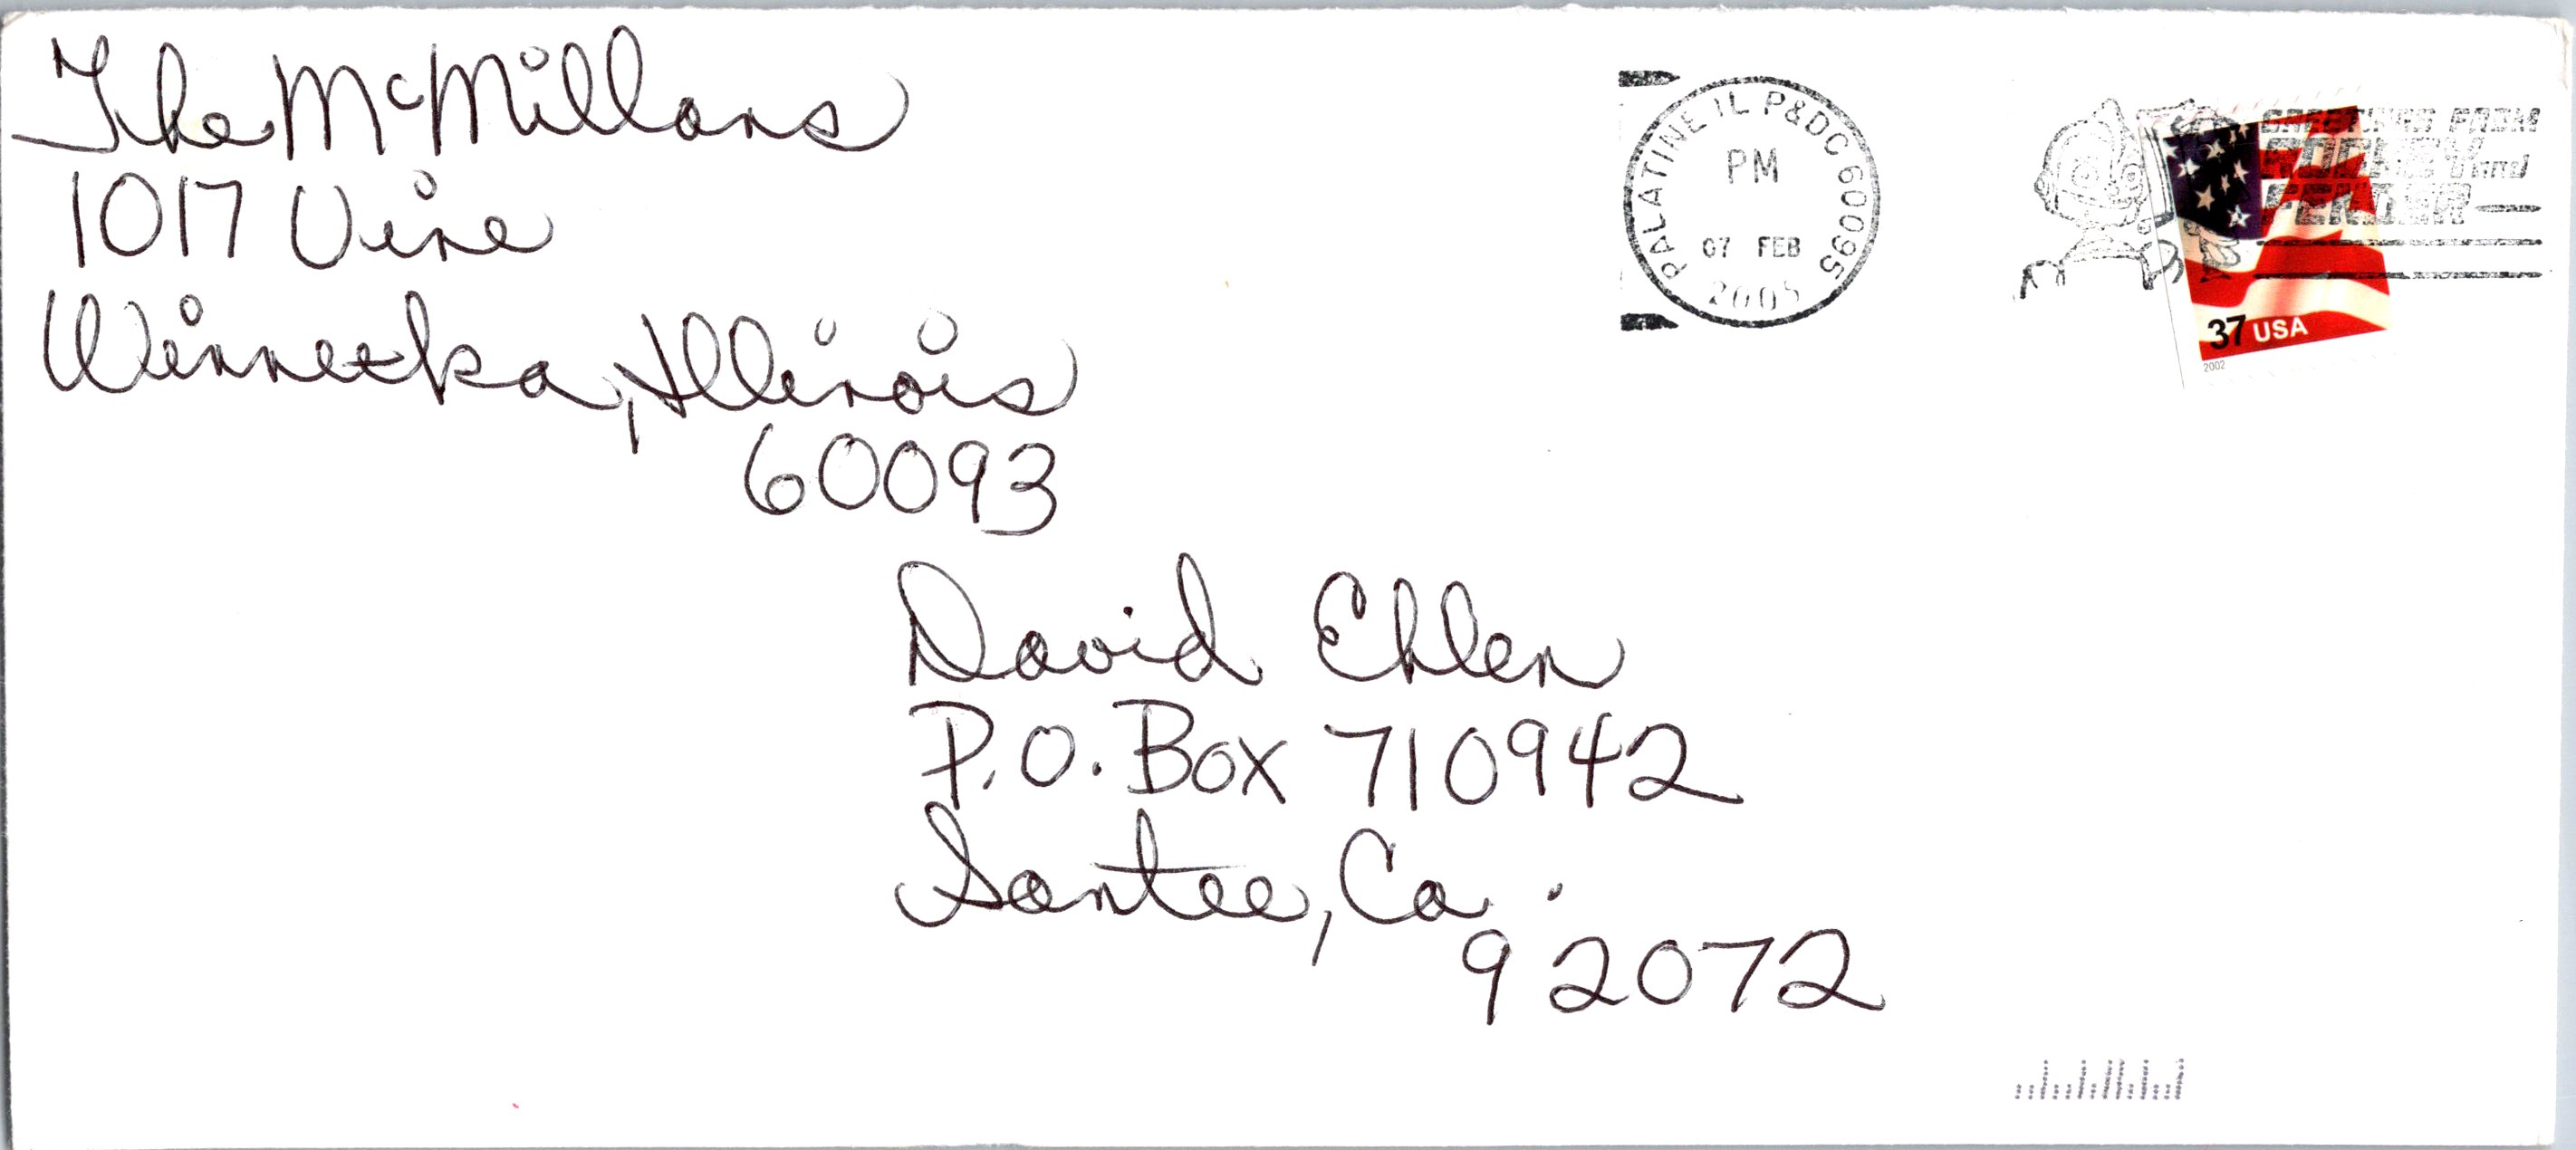 The McMillans
1017 Vine
Winnetka, Illinois
60093
PALATINE IL P&DC 60095
PM
07 FEB
2005
GREETINGS FROM
RODNEY and
FENDER
37 USA
2002
David Ehlen
P.O. Box 710942
Santee, Ca.
92072